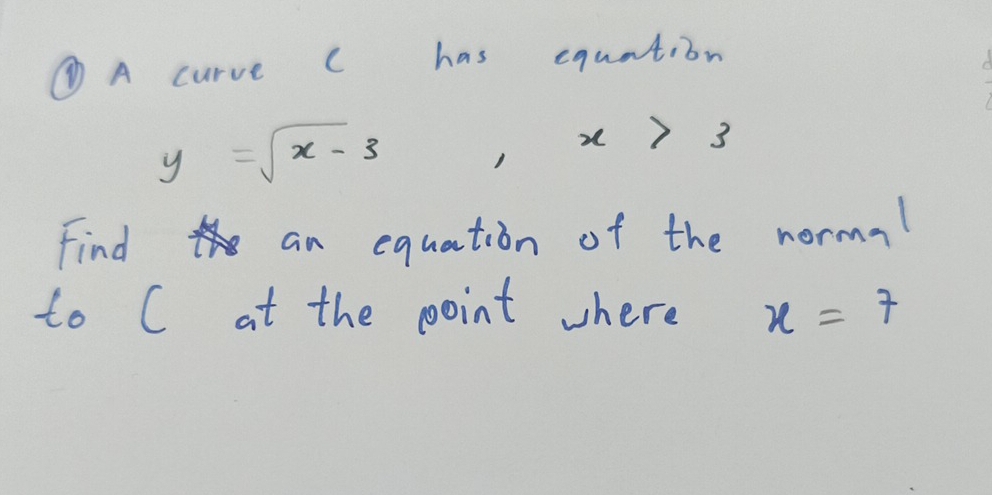 ① A curve C has equation
y = √x - 3 , x > 3
Find an equation of the normal
to C at the point where x = 7